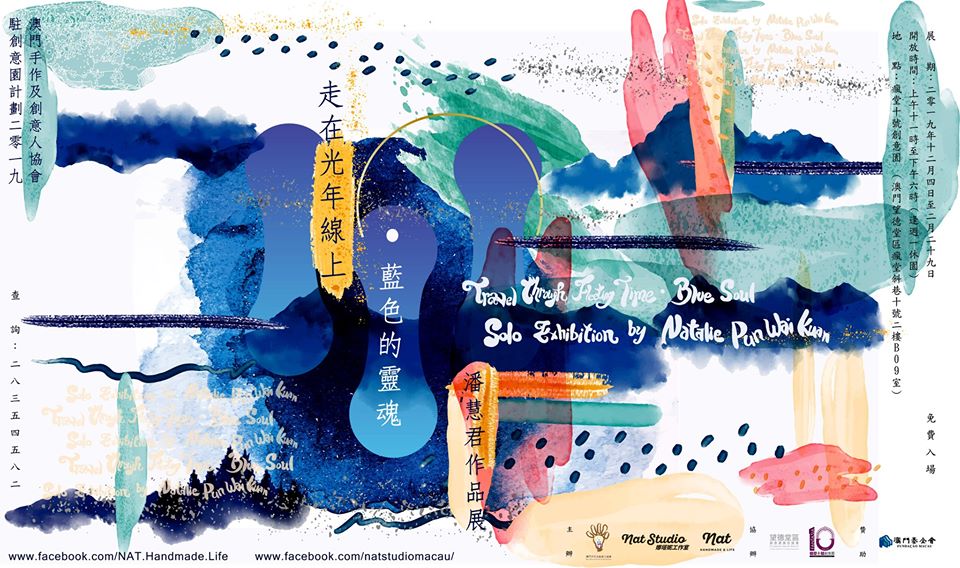 展　期：二零一九年十二月四日至二月二十九日
開放時間：上午十一時至下午六時（逢週一休園）
地　點：瘋堂十號創意園（澳門望德堂區瘋堂斜巷十號二樓B09室）
免費入場
澳門手作及創意人協會
駐創意園計劃二零一九
走在光年線上
藍色的靈魂
Travel Through Floating Time · Blue Soul
Solo Exhibition by Natalie Pun Wai Kuan
潘慧君作品展
查　詢：二八三五四五八二
Solo Exhibition by Natalie Pun Wai Kuan
Blue Soul
Solo Exhibition by Natalie Pun Wai Kuan
Travel Through Floating Time · Blue Soul
Solo Exhibition by Natalie Pun Wai Kuan
Travel Through Floating Time · Blue Soul
Solo Exhibition by Natalie Pun Wai Kuan
www.facebook.com/NAT.Handmade.Life
www.facebook.com/natstudiomacau/
主辦
Nat Studio
娜塔妮工作室
Nat
HANDMADE & LIFE
協辦
望德堂區
10
贊助
澳門基金會
FUNDAÇÃO MACAU